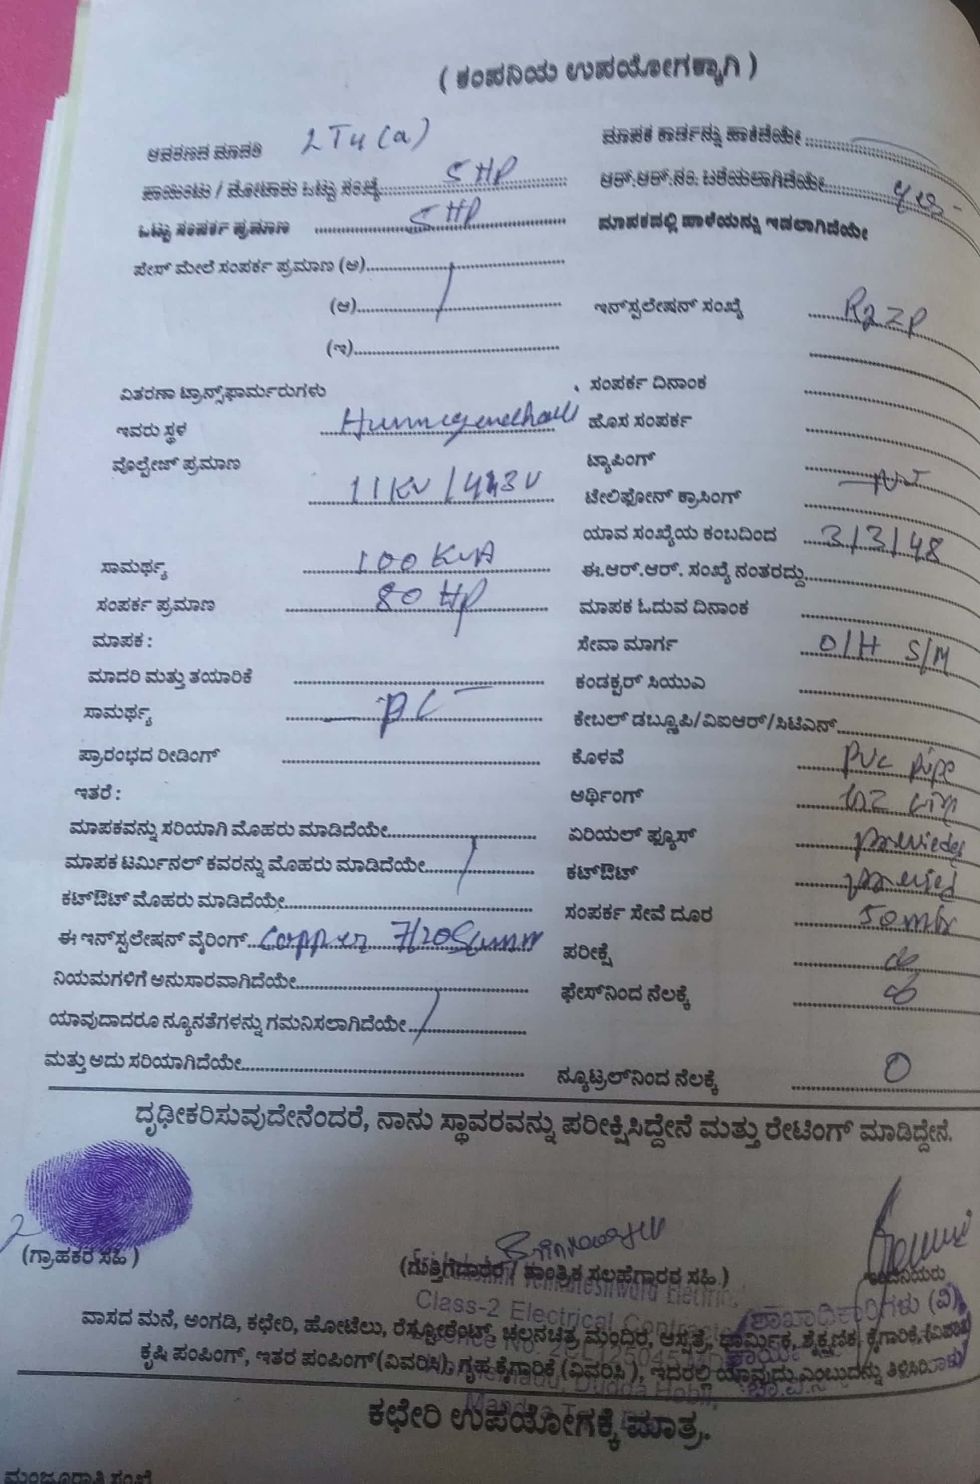 ( ಕಂಪನಿಯ ಉಪಯೋಗಕ್ಕಾಗಿ )
ಆವರಣದ ಮಾದರಿ LT4 (a) ಮಾಪಕ ಕಾರ್ಡನ್ನು ಹಾಕಿದೆಯೇ
ಪಾಯಿಂಟು / ಮೋಟಾರು ಒಟ್ಟು ಸಂಖ್ಯೆ 5 HP ಆರ್.ಆರ್.ನಂ. ಬರೆಯಲಾಗಿದೆಯೇ yes
ಒಟ್ಟು ಸಂಪರ್ಕ ಪ್ರಮಾಣ 5 HP ಮಾಪಕದಲ್ಲಿ ಹಾಳೆಯನ್ನು ಇಡಲಾಗಿದೆಯೇ
ಪೇಸ್ ಮೇಲೆ ಸಂಪರ್ಕ ಪ್ರಮಾಣ (ಅ)
(ಆ) ಇನ್‌ಸ್ಟಲೇಷನ್ ಸಂಖ್ಯೆ
(ಇ)
ವಿತರಣಾ ಟ್ರಾನ್ಸ್‌ಫಾರ್ಮರುಗಳು ಸಂಪರ್ಕ ದಿನಾಂಕ
ಇವರು ಸ್ಥಳ ಹೊಸ ಸಂಪರ್ಕ
ವೊಲ್ಟೇಜ್ ಪ್ರಮಾಣ ಟ್ಯಾಪಿಂಗ್
11KV / 433V ಟೇಲಿಫೋನ್ ಕ್ರಾಸಿಂಗ್
ಯಾವ ಸಂಖ್ಯೆಯ ಕಂಬದಿಂದ 3/3/48
ಸಾಮರ್ಥ್ಯ 100 KVA ಈ.ಆರ್.ಆರ್. ಸಂಖ್ಯೆ ನಂತರದ್ದು
ಸಂಪರ್ಕ ಪ್ರಮಾಣ 80 HP ಮಾಪಕ ಓದುವ ದಿನಾಂಕ
ಮಾಪಕ : ಸೇವಾ ಮಾರ್ಗ O/H S/M
ಮಾದರಿ ಮತ್ತು ತಯಾರಿಕೆ ಕಂಡಕ್ಟರ್ ಸಿಯುಎ
ಸಾಮರ್ಥ್ಯ ಕೇಬಲ್ ಡಬ್ಲ್ಯೂಪಿ/ವಿಐಆರ್/ಸಿಟಿಎಸ್
ಪ್ರಾರಂಭದ ರೀಡಿಂಗ್ ಕೊಳವೆ PVC pipe
ಇತರೆ : ಅರ್ಥಿಂಗ್
ಮಾಪಕವನ್ನು ಸರಿಯಾಗಿ ಮೊಹರು ಮಾಡಿದೆಯೇ ಏರಿಯಲ್ ಫ್ಯೂಸ್
ಮಾಪಕ ಟರ್ಮಿನಲ್ ಕವರನ್ನು ಮೊಹರು ಮಾಡಿದೆಯೇ ಕಟ್‌ಔಟ್
ಕಟ್‌ಔಟ್ ಮೊಹರು ಮಾಡಿದೆಯೇ ಸಂಪರ್ಕ ಸೇವೆ ದೂರ 50 mtr
ಈ ಇನ್‌ಸ್ಟಲೇಷನ್ ವೈರಿಂಗ್ Copper ಪರೀಕ್ಷೆ
ನಿಯಮಗಳಿಗೆ ಅನುಸಾರವಾಗಿದೆಯೇ ಫೇಸ್‌ನಿಂದ ನೆಲಕ್ಕೆ
ಯಾವುದಾದರೂ ನ್ಯೂನತೆಗಳನ್ನು ಗಮನಿಸಲಾಗಿದೆಯೇ
ಮತ್ತು ಅದು ಸರಿಯಾಗಿದೆಯೇ ನ್ಯೂಟ್ರಲ್‌ನಿಂದ ನೆಲಕ್ಕೆ 0
ದೃಢೀಕರಿಸುವುದೇನೆಂದರೆ, ನಾನು ಸ್ಥಾವರವನ್ನು ಪರೀಕ್ಷಿಸಿದ್ದೇನೆ ಮತ್ತು ರೇಟಿಂಗ್ ಮಾಡಿದ್ದೇನೆ.
(ಗ್ರಾಹಕರ ಸಹಿ ) (ಗುತ್ತಿಗೆದಾರರ / ತಾಂತ್ರಿಕ ಸಲಹೆಗಾರರ ಸಹಿ.)
Class-2 Electrical
ವಾಸದ ಮನೆ, ಅಂಗಡಿ, ಕಛೇರಿ, ಹೋಟೆಲು, ರೆಸ್ಟೋರೆಂಟ್, ಚಲನಚಿತ್ರ ಮಂದಿರ, ಆಸ್ಪತ್ರೆ, ಧಾರ್ಮಿಕ, ಶೈಕ್ಷಣಿಕ, ಕೈಗಾರಿಕೆ, (ವಿವರಿಸಿ)
ಕೃಷಿ ಪಂಪಿಂಗ್, ಇತರ ಪಂಪಿಂಗ್ (ವಿವರಿಸಿ), ಗೃಹ ಕೈಗಾರಿಕೆ (ವಿವರಿಸಿ ), ಇದರಲ್ಲಿ ಯಾವುದು ಎಂಬುದನ್ನು ತಿಳಿಸಿರಿ
ಕಛೇರಿ ಉಪಯೋಗಕ್ಕೆ ಮಾತ್ರ.
ಮಂಜೂರಾತಿ ಸಂಖ್ಯೆ